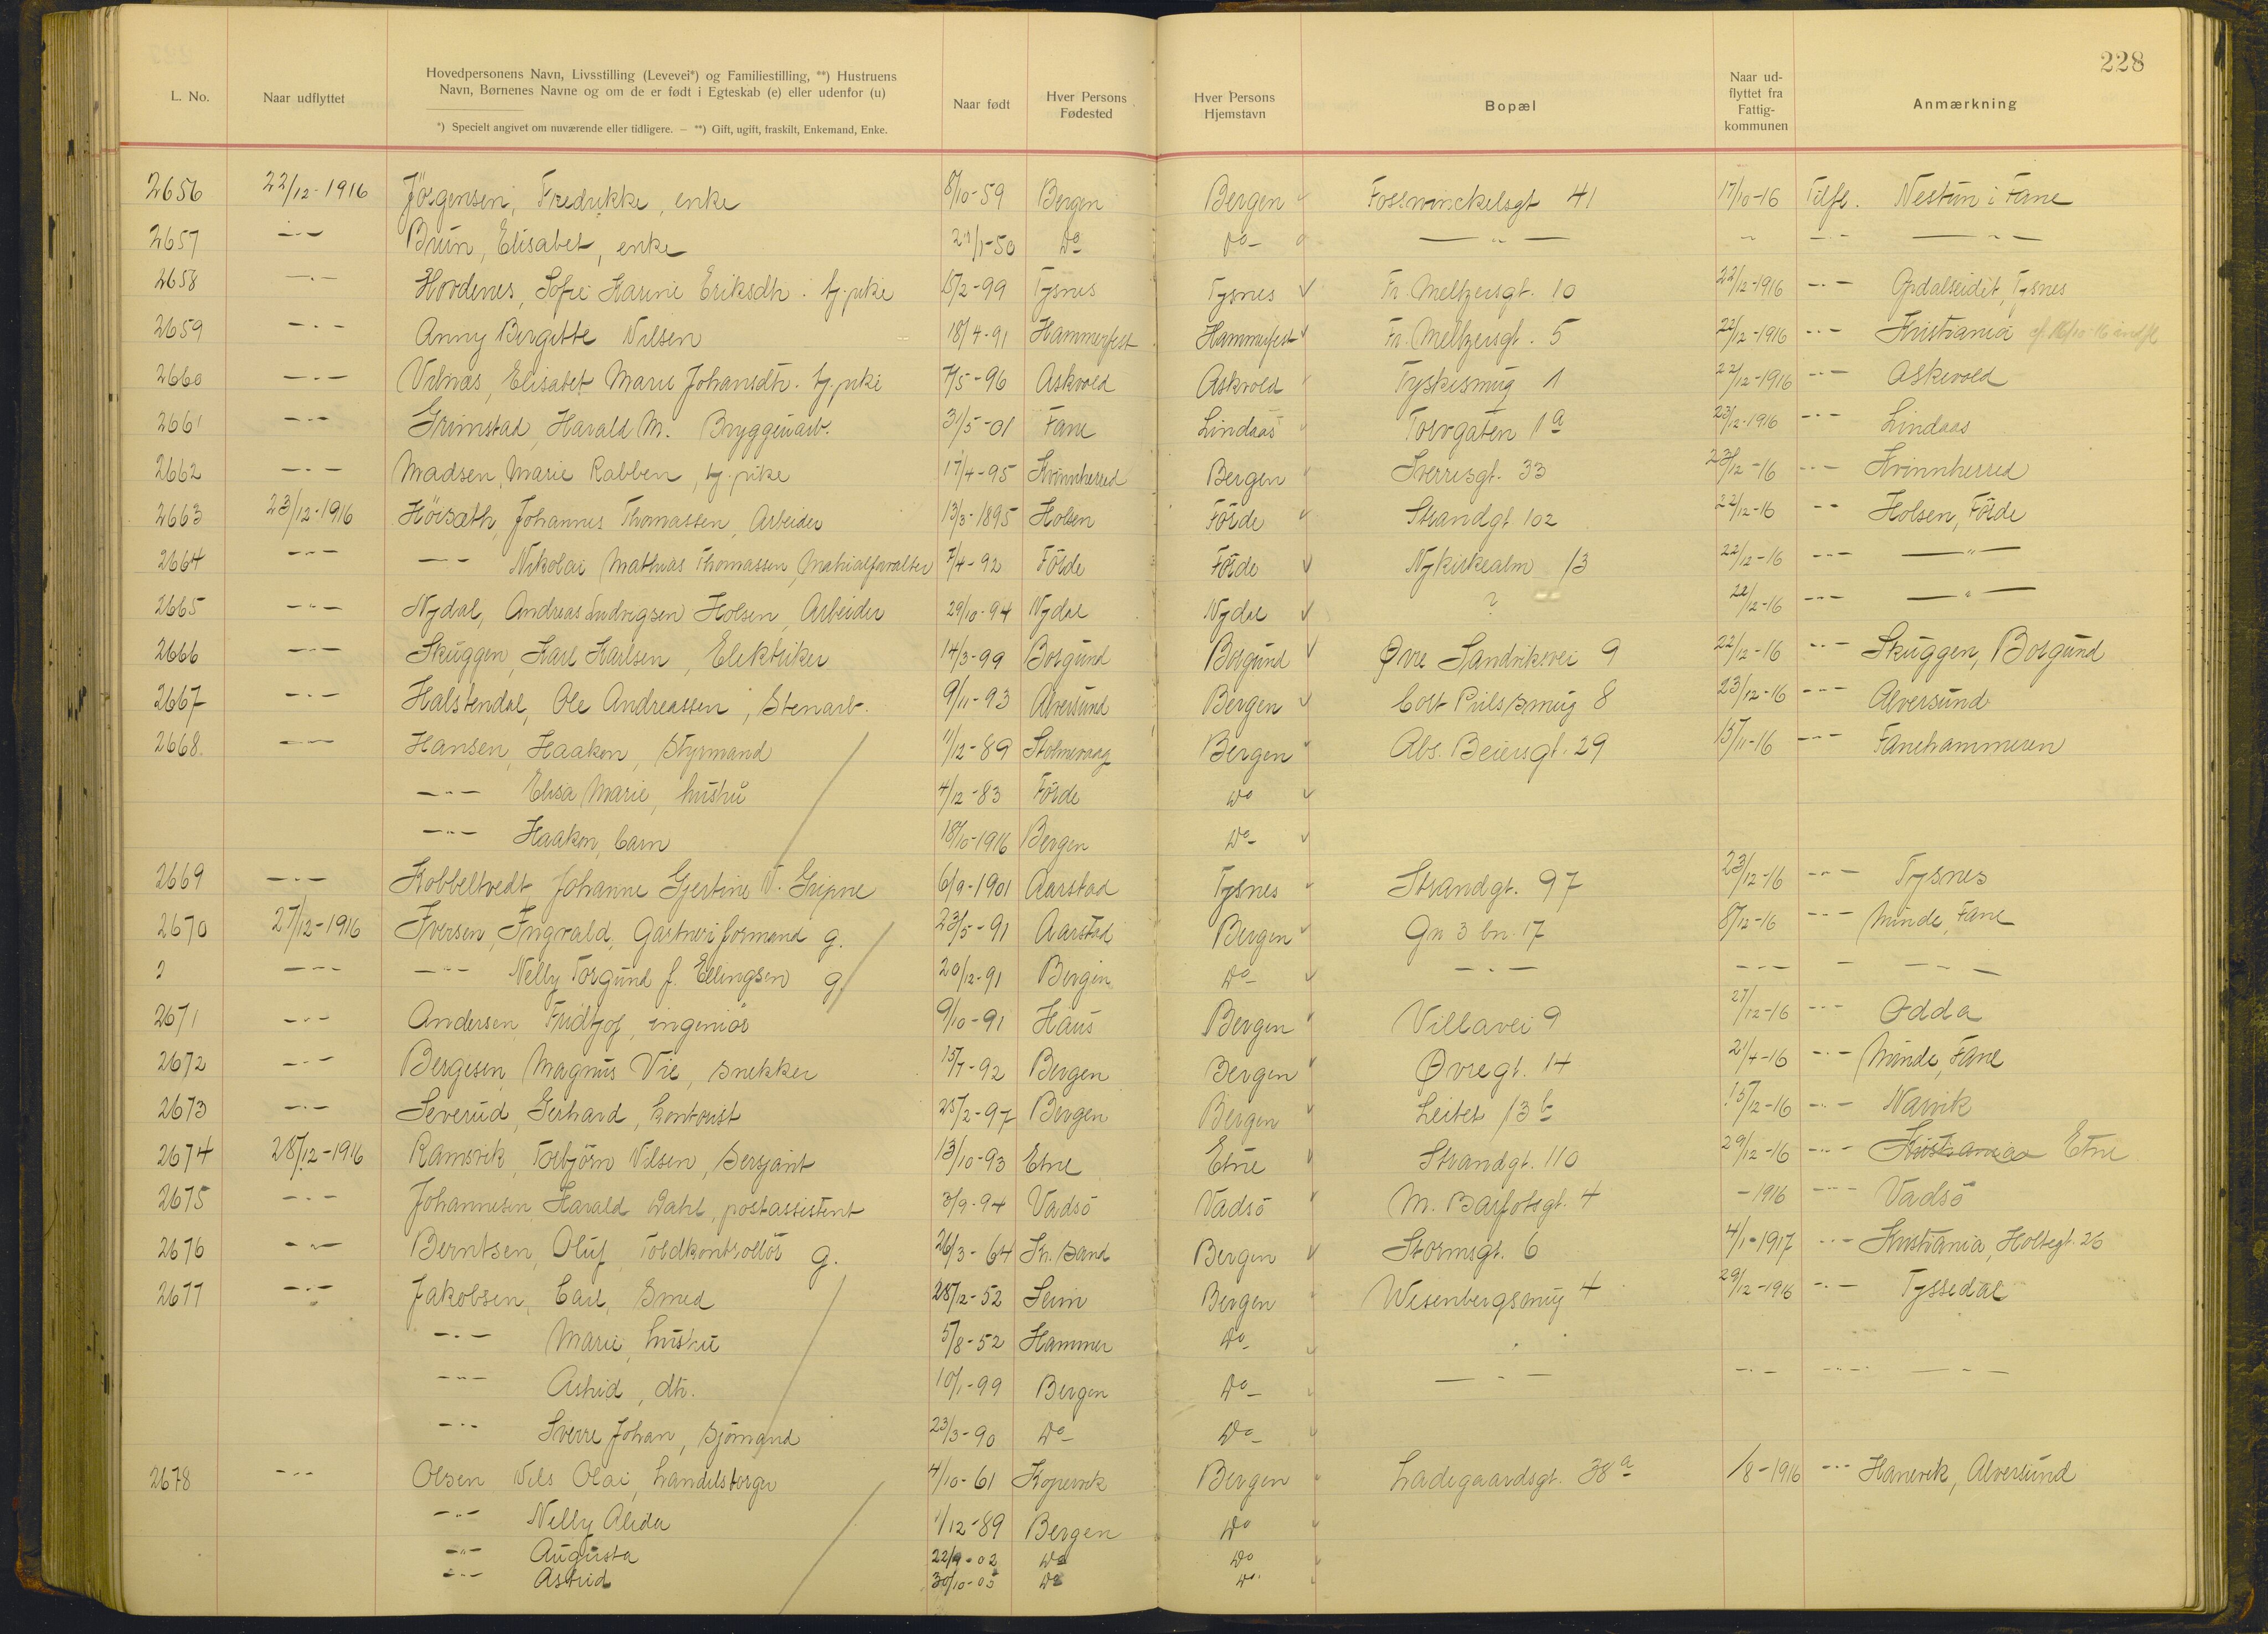 228
L. No.
Naar udflyttet
Hovedpersonens Navn, Livsstilling (Levevei*) og Familiestilling, **) Hustruens
Navn, Børnenes Navne og om de er født i Egteskab (e) eller udenfor (u)
*) Specielt angivet om nuværende eller tidligere. — **) Gift, ugift, fraskilt, Enkemand, Enke.
Naar født
Hver Persons
Fødested
Hver Persons
Hjemstavn
Bopæl
Naar ud-
flyttet fra
Fattig-
kommunen
Anmærkning
2656 22/12-1916 Jörgensen, Fredrikke, enke 8/10-59 Bergen Bergen Fosswinckelsgt 41 17/10-16 Tilfl. Nestun i Fane
2657 -"- Bruun, Elisabet, enke 21/1-50 Do Do - — " — " -"- — " —
2658 -"- Hovdenes, Sofie Karine Eriksdtr. tj.pike 15/2-99 Tysnes Tysnes Fr. Meltzersgt. 10 22/12-1916 -"- Opdalseidet, Tysnes
2659 -"- Anny Birgitte Nilsen 18/4-91 Hammerfest Hammerfest Fr. Meltzersgt. 5 22/12-1916 -"- Kristiania cf. 16/10-16 indfl
2660 -"- Vilnæs, Elisabet Marie Johansdtr. tj.pike 7/5-96 Askvold Askvold Tyskesmug 1 22/12-1916 -"- Askevold
2661 -"- Grimstad, Harald M. Bryggeriarb. 31/5-01 Fane Lindaas Torvgaten 1a 23/12-1916 -"- Lindaas
2662 -"- Madsen, Marie Rabben, tj.pike 17/4-95 Kvinnherred Bergen Sverresgt. 33 23/12-16 -"- Kvinnherred
2663 23/12-1916 Höisæth, Johannes Thomassen, Arbeider 13/3-1895 Holsen Förde Strandgt. 102 22/12-16 -"- Holsen, Förde
2664 -"- -"- Nikolai Mathias Thomassen, 7/4-92 Förde Förde Nykirkealm 13 22/12-16 -"- — " —
2665 -"- Nydal, Andreas Ludvigsen Holsen, Arbeider 29/10-94 Nydal Nydal ? 22/12-16 -"- — " —
2666 -"- Skuggen, Karl Karlsen, Elektriker 14/3-99 Borgund Borgund Øvre Sandviksvei 9 22/12-16 -"- Skuggen, Borgund
2667 -"- Halstendal, Ole Andreassen, Stenarb. 9/11-93 Alversund Bergen Cort Piilssmug 8 23/12-16 -"- Alversund
2668. -"- Hansen, Haakon, Styrmand 11/12-89 Stolmevaag Bergen Abs. Beiersgt. 29 15/11-16 -"- Fanehammeren
-"- Elisa Marie, hustru 4/12-83 Förde Do
-"- Haakon, barn 18/10-1916 Bergen Do-
2669 -"- Kobbeltvedt, Johanne Gjertine N. Gripne 6/9-1901 Aarstad Tysnes Strandgt. 97 23/12-16 -"- Tysnes
2670 27/12-1916 Iversen, Ingvald, Gartneriformand g. 23/5-91 Aarstad Bergen Gn 3 bn. 17 8/12-16 -"- Minde, Fane
2 -"- -"- Nelly Torgund f. Ellingsen g. 20/12-91 Bergen Do- — " — -"- - -"-
2671 -"- Andersen Fridtjof, ingeniör 9/10-91 Haus Bergen Villavei 9 27/12-16 -"- Odda
2672 -"- Bergesen, Magnus Vie, snekker 15/7-92 Bergen Bergen Øvregt. 14 21/4-16 -"- Minde, Fane
2673 -"- Severud, Gerhard, kontorist 25/2-97 Bergen Bergen Leitet 13b 15/12-16 -"- Narvik
2674 28/12-1916 Ramsvik, Torbjörn Nilsen, Sersjant 13/10-93 Etne Etne Strandgt. 110 29/12-16 -"- Kristiania Etne
2675 -"- Johannesen, Harald Dahl, postassistent 3/9-94 Vadsö Vadsö M. Barfotsgt. 4 -1916 -"- Vadsö
2676 -"- Berntsen, Oluf, Toldkontrollör g. 26/3-64 Kr.sand Bergen Stormsgt. 6 4/1-1917 -"- Kristiania, Holtegt. 26
2677 -"- Jakobsen, Carl, Smed 28/12-52 Seim Bergen Wesenbergsmug 4 29/12-1916 -"- Tyssedal
-"- Marie, hustru 5/8-52 Hammer Do-
-"- Astrid, dtr. 10/1-99 Bergen Do- — " — -"- -"- — " —
-"- Sverre Johan, Sjömand 23/3-90 Do- Do-
2678 -"- Olsen Nils Olai, handelsborger 4/10-61 Kopervik Bergen Ladegaardsgt. 38a /8-1916 -"- Hanevik, Alversund
-"- Nelly Alida 1/12-89 Bergen Do
-"- Augusta 22/9-02 Do Do
-"- Astrid 30/10-05 Do Do